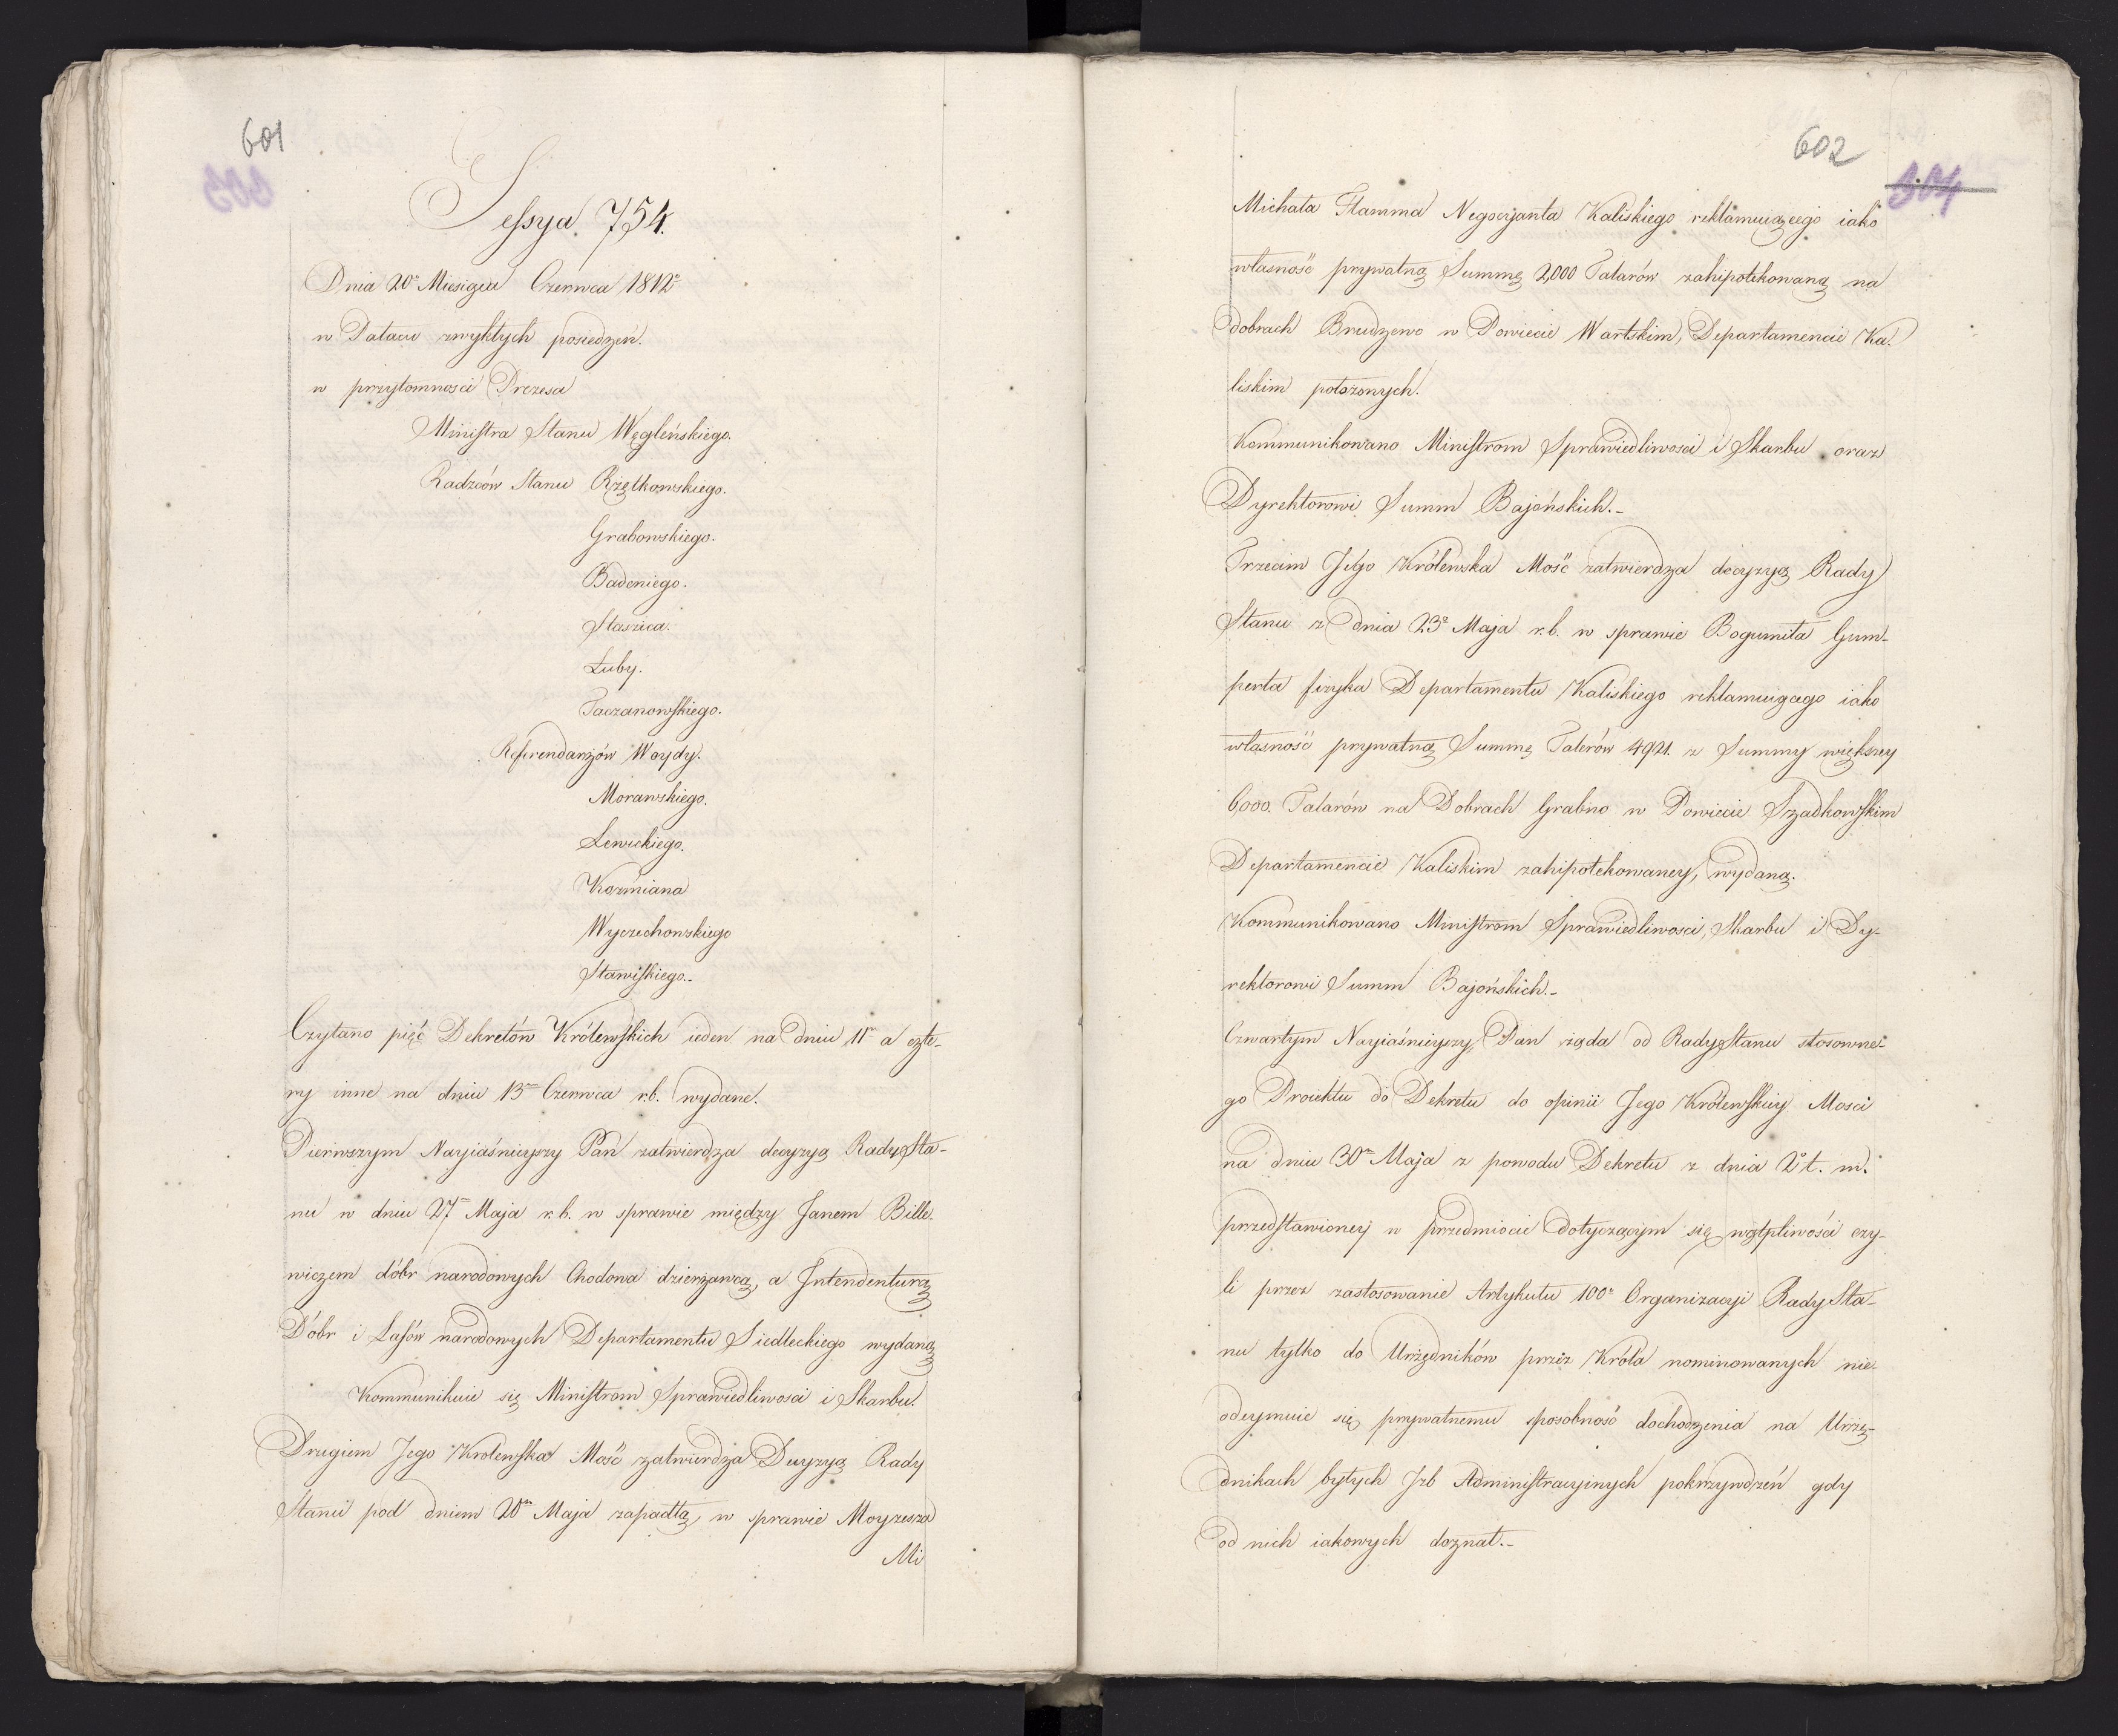 601
Sessya 754.
Dnia 20º Miesiąca Czerwca 1812º
w Pałacu zwykłych posiedzeń.
w przytomnosci Prezesa
Ministra Stanu Węgleńskiego.
Radzców Stanu Rzętkowskiego.
Grabowskiego.
Badeniego.
Staszica.
Łuby.
Taczanowskiego.
Referendarzów Woydy.
Morawskiego.
Lewickiego.
Koźmiana
Wyczechowskiego
Stawiskiego.-
Czytano pięć Dekretów Królewskich ieden na dniu 11m a czte-
ry inne na dniu 13m Czerwca r.b. wydane.
Pierwszym Nayiaśnieyszy Pan zatwierdza decyzyą Rady Sta-
nu w dniu 27m Maja r.b. w sprawie między Janem Bille-
wiczem dóbr narodowych Chodowa dzierżawcą, a Intendenturą
Dóbr i Lasów narodowych Departamentu Siedleckiego wydaną
Kommunikuie się Ministrom Sprawiedliwosci i Skarbu.
Drugiem Jego Krolewska Mość zatwierdza Decyzyą Rady
Stanu pod dniem 20m Maja zapadłą, w sprawie Moyzesza
Mi
602
304
Michała Flamma Negocyanta Kaliskiego reklamuiącego iako
własność prywatną Summę 2,000 Talarów zahipotekowaną na
dobrach Brudzewo w Powiecie Wartskim, Departamencie Ka-
liskim położonych.
Kommunikowano Ministrom Sprawiedliwosci i Skarbu oraz
Dyrektorowi Summ Bajońskich.-
Trzecim Jego Królewska Mość zatwierdza decyzyą Rady
Stanu z dnia 23º Maja r.b. w sprawie Bogumiła Gum-
perta fizyka Departamentu Kaliskiego reklamuiącego iako
własność prywatną Summę Talerów 4921. z Summy większey
6,000. Talarów na Dobrach Grabno w Powiecie Szadkowskim
Departamencie Kaliskim zahipotekowaney, wydaną.
Kommunikowano Ministrom Sprawiedliwosci, Skarbu i Dy-
rektorowi Summ Bajońskich.-
Czwartym Nayiaśnieyszy Pan żąda od Rady Stanu stosowne-
go Proiektu do Dekretu do opinii Jego Królewskiey Mosci
na dniu 30m Maja z powodu Dekretu z dnia 2º t. m.
przedstawioney w przedmiocie dotyczącym się wątpliwości czy-
li przez zastosowanie Artykułu 100º Organizacyi Rady Sta-
nu tylko do Urzędników przez Króla nominowanych nie
odeymuie się prywatnemu sposobność dochodzenia na Urzę-
dnikach byłych Izb Administracyinych pokrzywdzeń gdy
od nich iakowych doznał.-